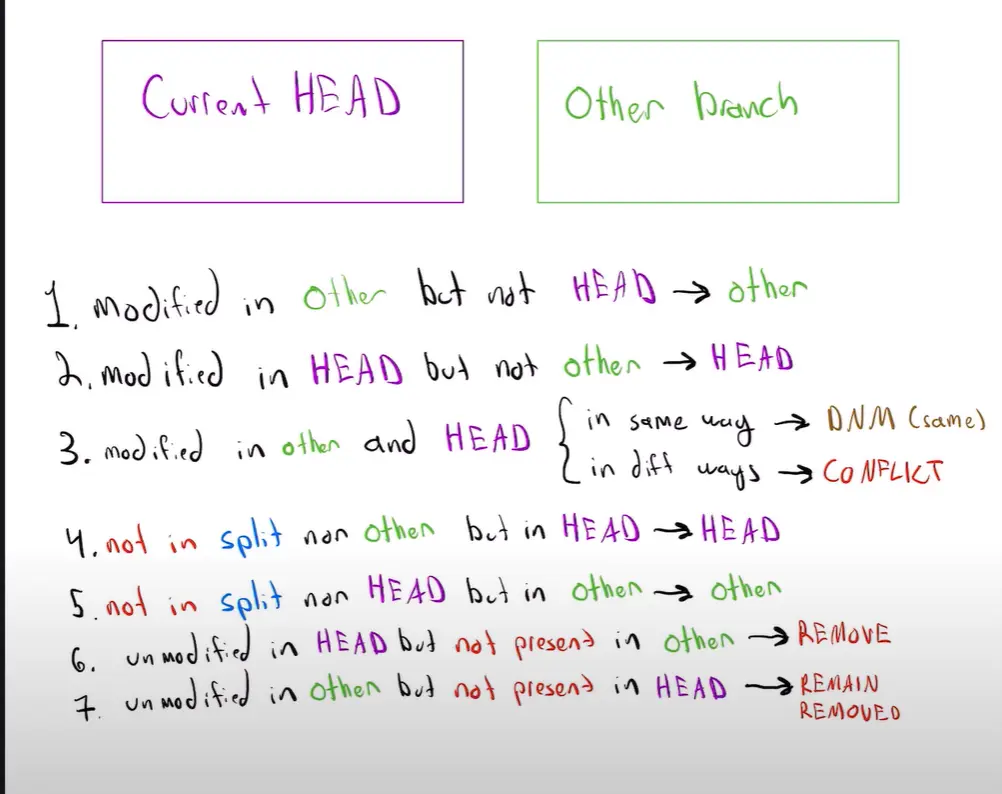 Current HEAD
Other branch
1. modified in other but not HEAD → other
2. modified in HEAD but not other → HEAD
3. modified in other and HEAD { in same way → DNM (same)
in diff ways → CONFLICT
4. not in split nor other but in HEAD → HEAD
5. not in split nor HEAD but in other → other
6. unmodified in HEAD but not present in other → REMOVE
7. unmodified in other but not present in HEAD → REMAIN
REMOVED